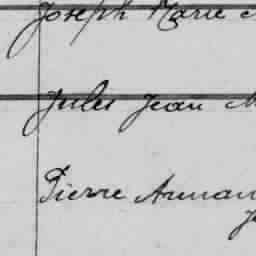 Joseph Marie
Jules Jean M
Pierre Arman